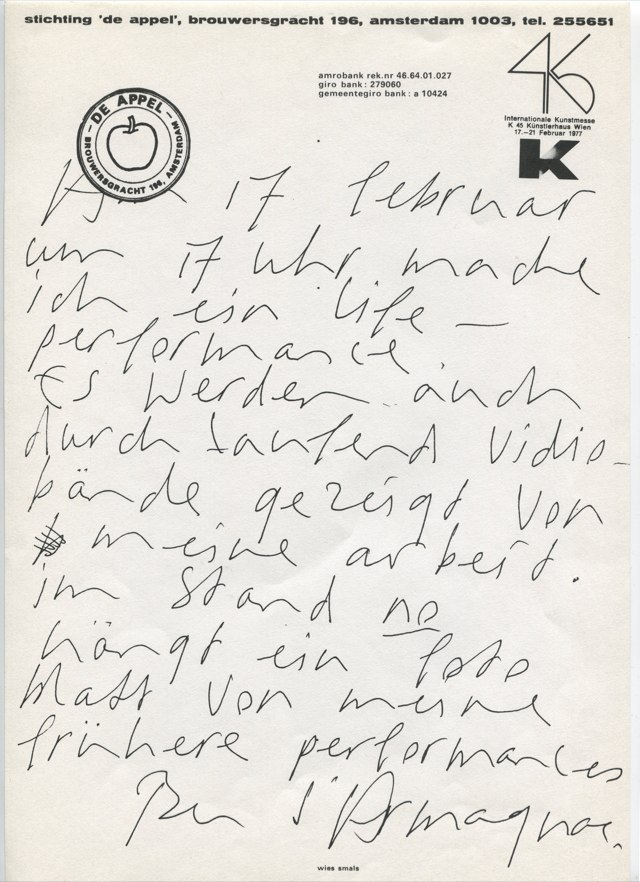 stichting 'de appel', brouwersgracht 196, amsterdam 1003, tel. 255651
amrobank rek.nr 46.64.01.027
giro bank : 279060
gemeentegiro bank : a 10424
46
Internationale Kunstmesse
K 45 Künstlerhaus Wien
17.–21 Februar 1977
K
DE APPEL
BROUWERSGRACHT 196, AMSTERDAM
17 februar
um 17 uhr mache
ich ein life –
performance
Es werden auch
durch laufend vidio-
bände gezeigt von
meine arbeit.
im stand no
hängt ein foto
blatt von meine
frühere performances
Ben d'Armagnac.
wies smals